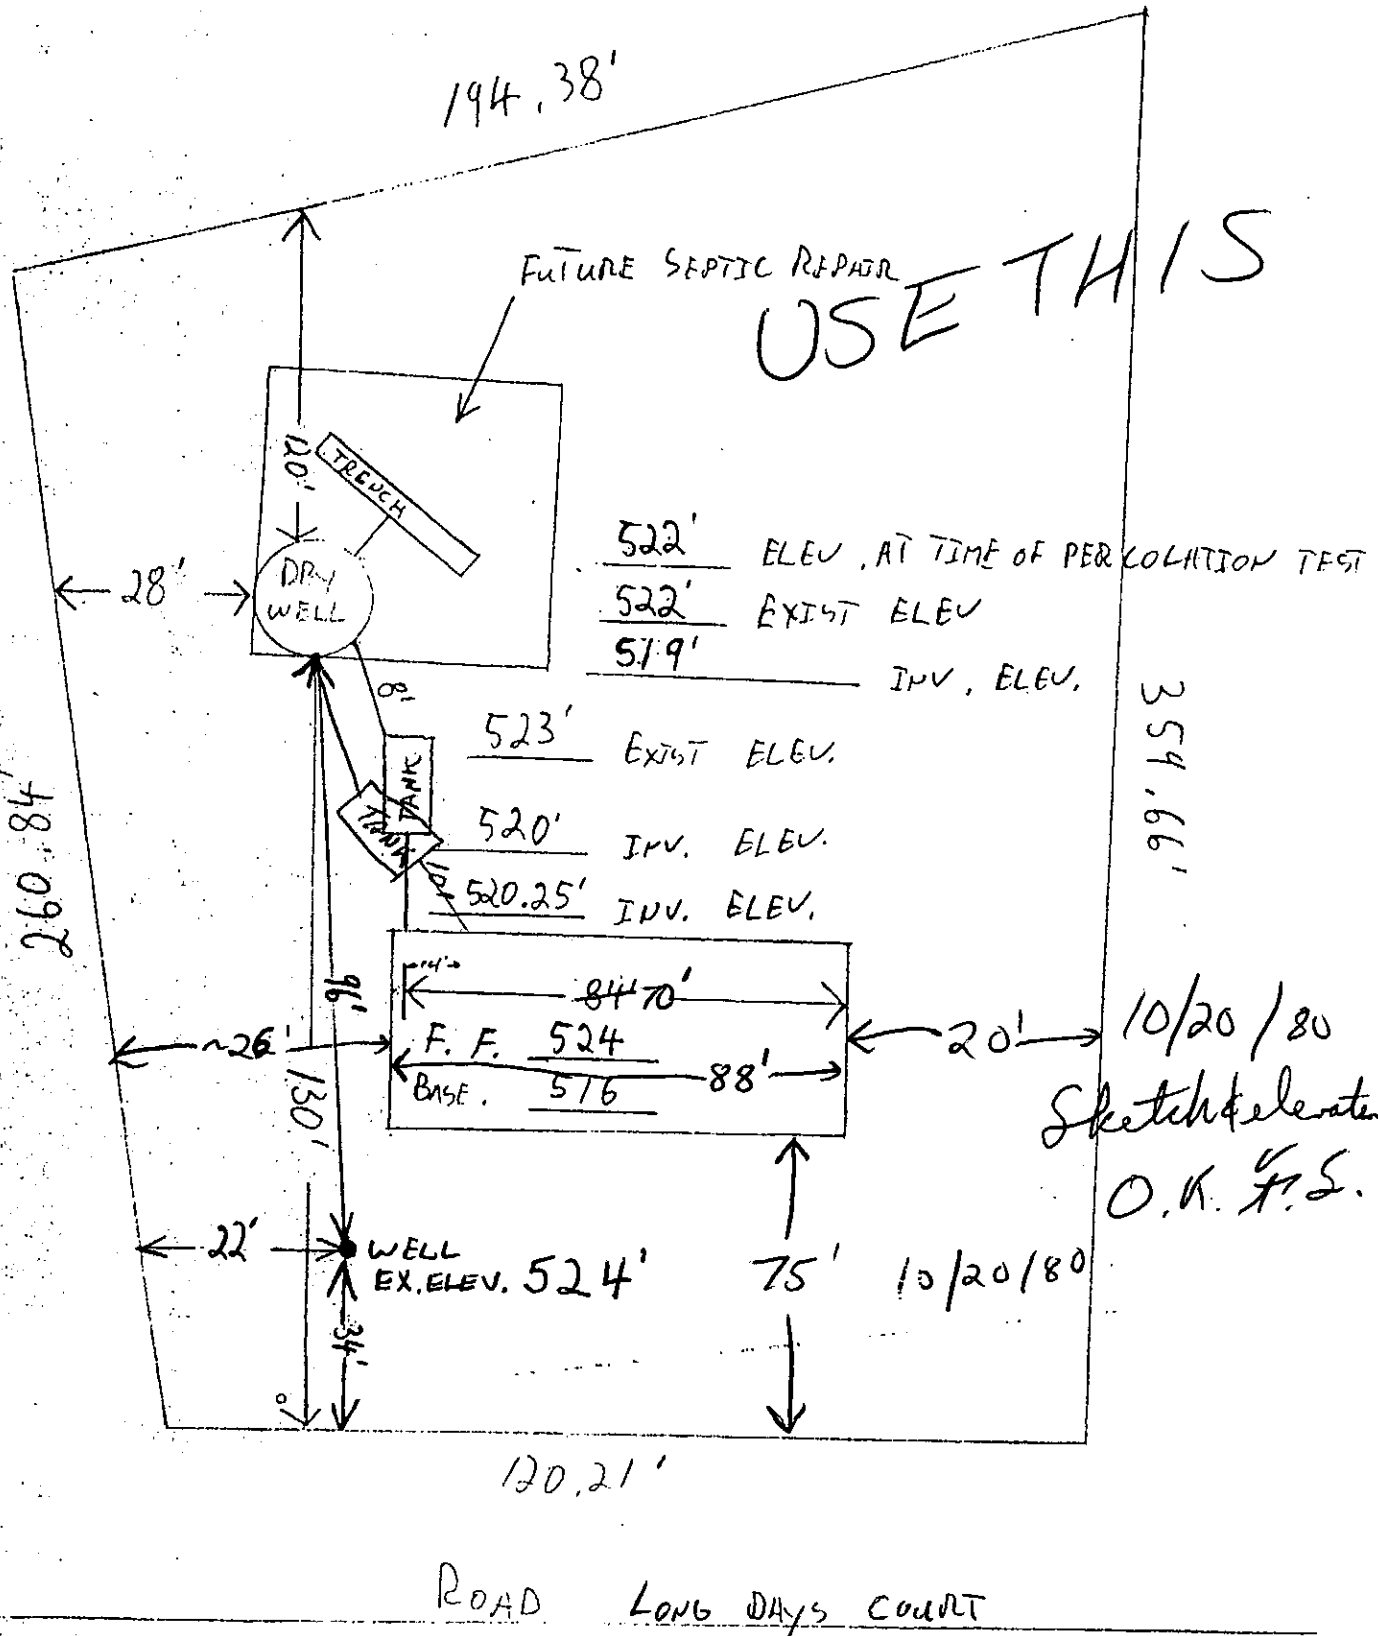 194.38'
FUTURE SEPTIC REPAIR
USE THIS
120'
TRENCH
DRY
WELL
28'
522' ELEV. AT TIME OF PERCOLATION TEST
522' EXIST ELEV
519' INV. ELEV.
8'
523' EXIST ELEV.
TANK
TANK
520' INV. ELEV.
10'
520.25' INV. ELEV.
260.84'
359.66'
14'
84' 70'
96'
~26'
F. F. 524
88'
BASE. 516
20'
130'
10/20/80
Sketch & elevation
O.K. F.S.
22'
WELL
EX. ELEV. 524'
75'
10/20/80
34'
120.21'
ROAD LONG DAYS COURT